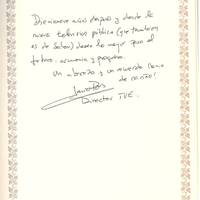 Diecinueve años después y desde la
nueva televisión pública (que también
es de todos) deseo lo mejor para el
futuro, armonía y progreso.
Un abrazo y un recuerdo lleno
de cariño!
Director TVE.